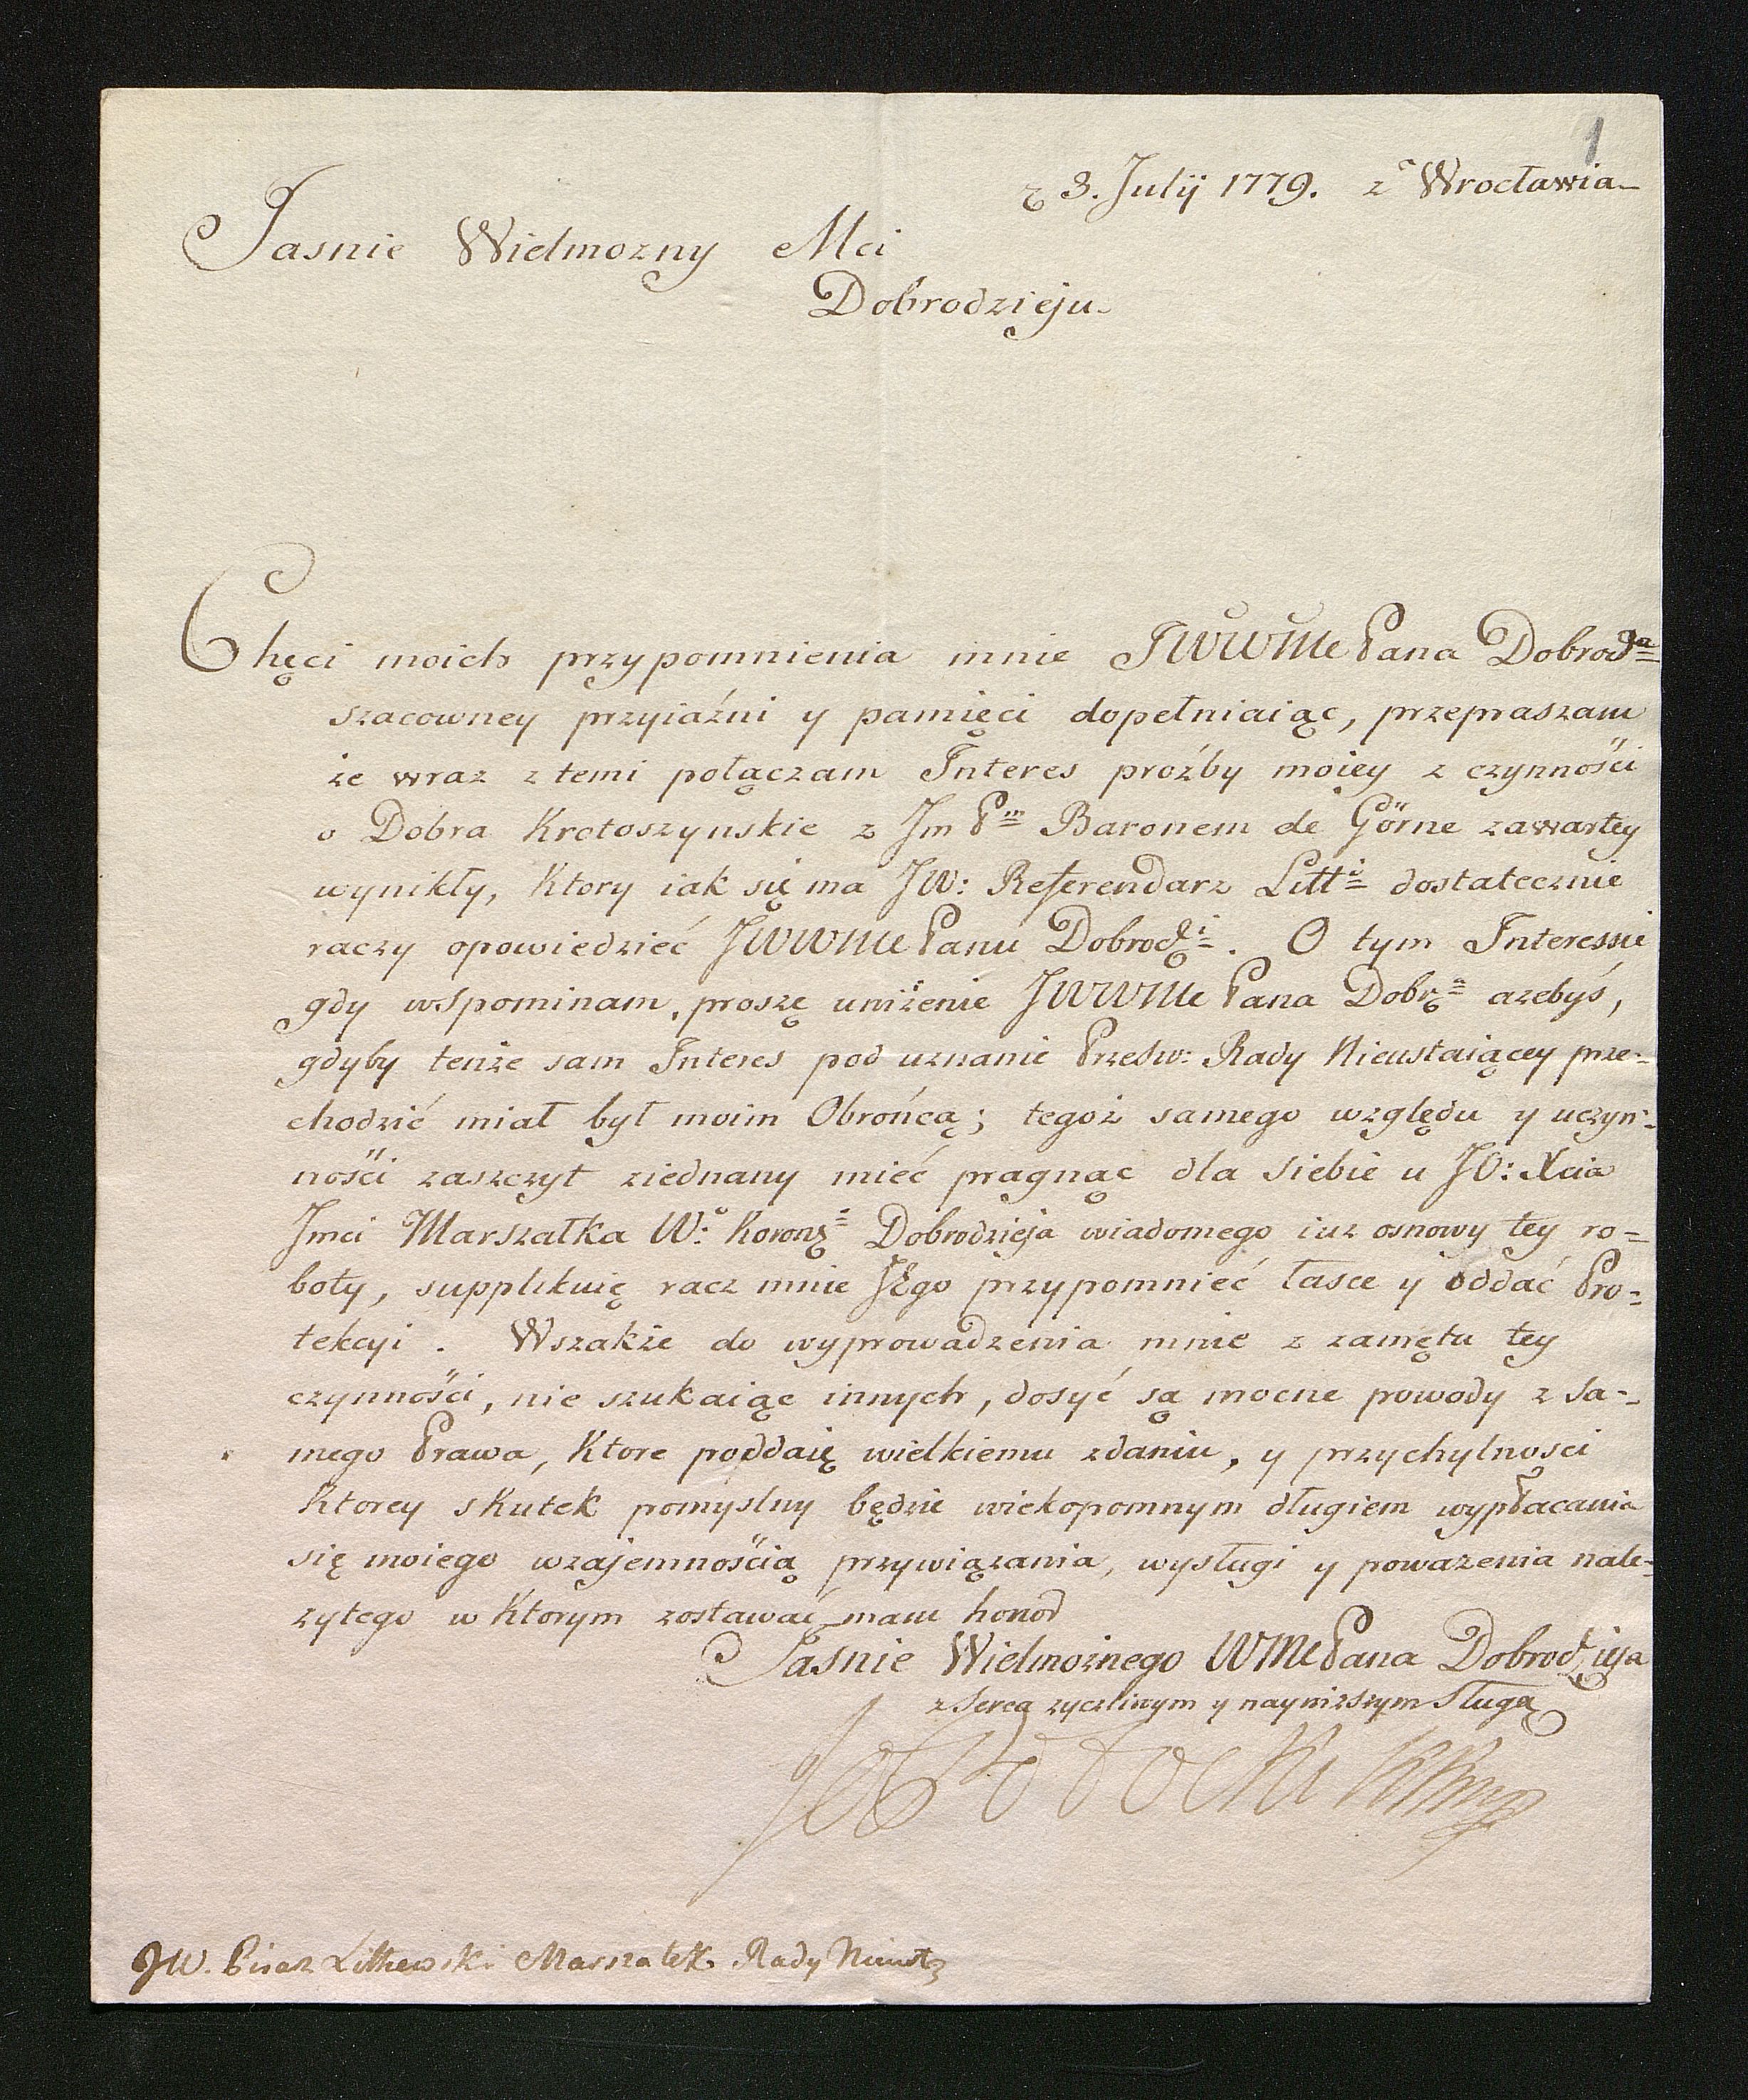 1
3. Julij 1779. z Wrocławia
Jasnie Wielmozny Mci
Dobrodzieju
Chęci moich przypomnienia mnie JWWMc Pana Dobrodª
szacowney przyiaźni y pamięci dopełniaiąc, przepraszam
że wraz z temi połączam Interes proźby moiey z czynności
o Dobra Krotoszynskie z Jm Pm Baronem de Görne zawartey
wynikły, Ktory iak się ma JW: Referendarz Litti dostatecznie
raczy opowiedzieć JWWMc Panu Dobrodzi. O tym Interessie
gdy wspominam, proszę uniżenie JWWMc Pana Dobrª azebyś,
gdyby tenże sam Interes pod uznanie Prześw: Rady Nieustaiącey prze-
chodzić miał był moim Obrońcą; tegoż samego względu y uczyn-
ności zaszczyt ziednany mieć pragnąc dla siebie u JO: Xcia
Jmci Marszałka W: Koronz Dobrodzieja wiadomego iuz osnowy tey ro-
boty, supplikuię racz mnie JEgo przypomnieć łasce y oddać Pro-
tekcyi. Wszakże do wyprowadzenia mnie z zamętu tey
czynności, nie szukaiąc innych, dosyć są mocne powody z sa-
mego Prawa, Ktore poddaię wielkiemu zdaniu, y przychylności
Ktorey skutek pomyslny będzie wiekopomnym długiem wypłacania
się moiego wzajemnością przywiązania, wysługi y poważenia nale-
zytego w Ktorym zostawać mam honor
Jasnie Wielmożnego WMcPana Dobrodzieja
z serca zyczliwym y nayniższym sługą
Potocki
JW. Pisarz Littewski Marszałek Rady Nieust